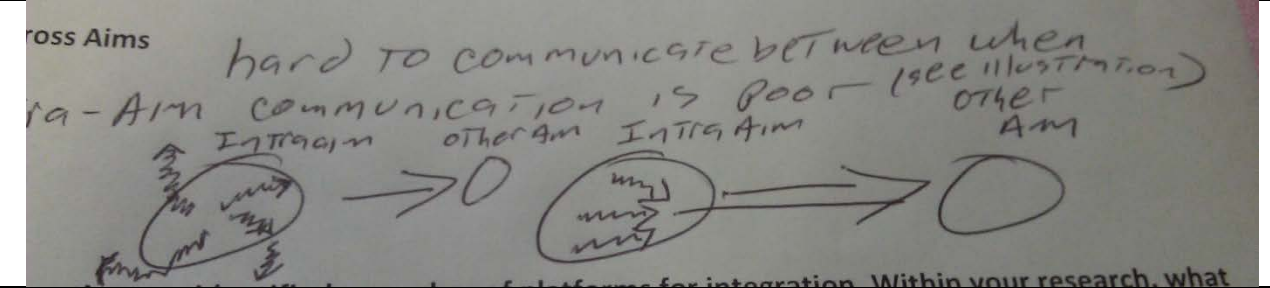 ross Aims
hard to communicate between when
ra-Aim communication is poor (see illustration)
Intraaim other Aim Intra Aim other Aim
for integration. Within your research, what